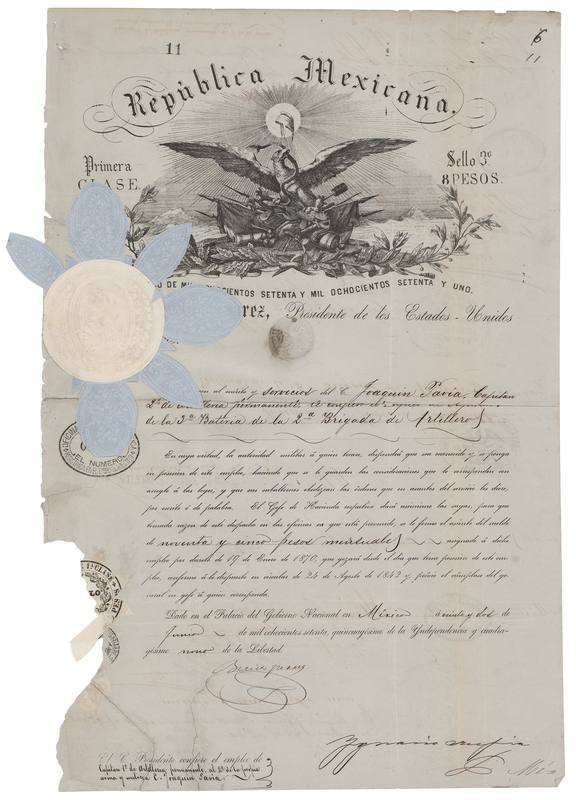 11
6
11
República Mexicana.
Primera
CLASE.
Sello 3º
8 PESOS.
DE MIL OCHOCIENTOS SETENTA Y MIL OCHOCIENTOS SETENTA Y UNO.
rez, Presidente de los Estados-Unidos
en al mérito y servicios del C. Joaquin Pavia, Capitan
2º de permanente
de la 3ª Bateria de la 2ª Brigada de Artilleros
En cuya virtud, la autoridad militar á quien tocare, dispondrá que sea reconocido y se ponga
en posesion de este empleo, haciendo que se le guarden las consideraciones que le correspondan con
arreglo á las leyes, y que sus subalternos obedezcan las órdenes que en asuntos del servicio les diere,
por escrito ó de palabra. El Gefe de Hacienda respectivo dará asimismo las suyas, para que
tomada razon de este despacho en las oficinas en que está prevenido, se le forme el asiento del sueldo
de noventa y cinco pesos mensuales asignado á dicho
empleo por decreto de 19 de Enero de 1870, que gozará desde el dia que tome posesion de este em-
pleo, conforme á lo dispuesto en circular de 24 de Agosto de 1842 y prévio el cúmplase del ge-
neral en gefe á quien corresponda.
Dado en el Palacio del Gobierno Nacional en México á veinte y dos de
Junio de mil ochocientos setenta, quincuagésimo de la Yndependencia y cuadra-
gésimo nono de la Libertad.
Benito Juarez
EL NUMERO
1ª CLASE
Ygnacio Mejia
El C. Presidente confiere el empleo de
Capitan 1º de Artilleria, permanente, al 2º de la propia
arma y C. Joaquin Pavia.